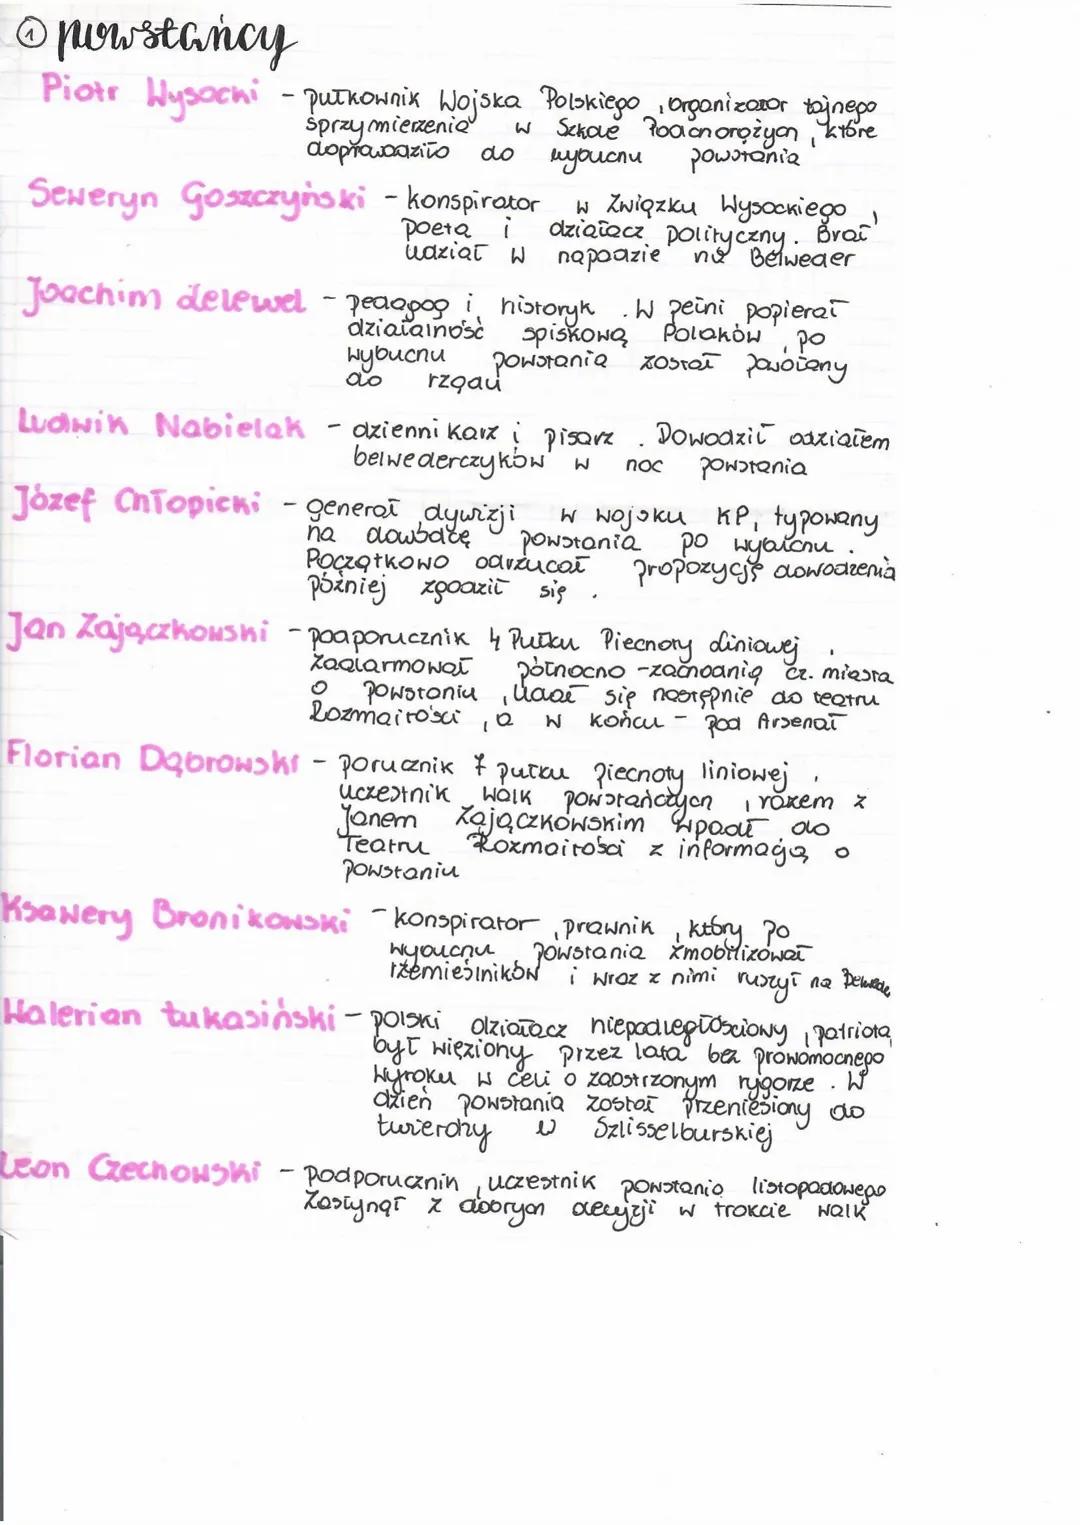 ① powstańcy
Piotr Wysocki - pułkownik Wojska Polskiego, organizator tajnego
sprzymierzenia w Szkole Podchorążych, które
doprowadziło do wybuchu powstania
Seweryn Goszczyński - konspirator w Związku Wysockiego,
poeta i działacz polityczny. Brał
udział w napadzie na Belweder
Joachim Lelewel - pedagog i historyk. W pełni popierał
działalność spiskową Polaków, po
wybuchu powstania został powołany
do rządu
Ludwik Nabielak - dziennikarz i pisarz. Dowodził oddziałem
belwederczyków w noc powstania
Józef Chłopicki - generał dywizji w wojsku KP, typowany
na dowódcę powstania po wybuchu.
Początkowo odrzucał propozycję dowodzenia
później zgodził się.
Jan Zajączkowski - podporucznik 4 Pułku Piechoty Liniowej,
zaalarmował północno-zachodnią cz. miasta
o powstaniu, udał się następnie do teatru
Rozmaitości, a w końcu - pod Arsenał
Florian Dąbrowski - porucznik 7 pułku piechoty liniowej,
uczestnik walk powstańczych, razem z
Janem Zajączkowskim wpadł do
Teatru Rozmaitości z informacją o
powstaniu
Ksawery Bronikowski - konspirator, prawnik, który po
wybuchu powstania zmobilizował
rzemieślników i wraz z nimi ruszył na Belweder
Walerian Łukasiński - polski działacz niepodległościowy, patriota,
był więziony przez lata bez prawomocnego
wyroku w celi o zaostrzonym rygorze. W
dzień powstania został przeniesiony do
twierdzy w Szlisselburskiej
Leon Czechowski - podporucznik, uczestnik powstania listopadowego
Zasłynął z dobrych decyzji w trakcie walk